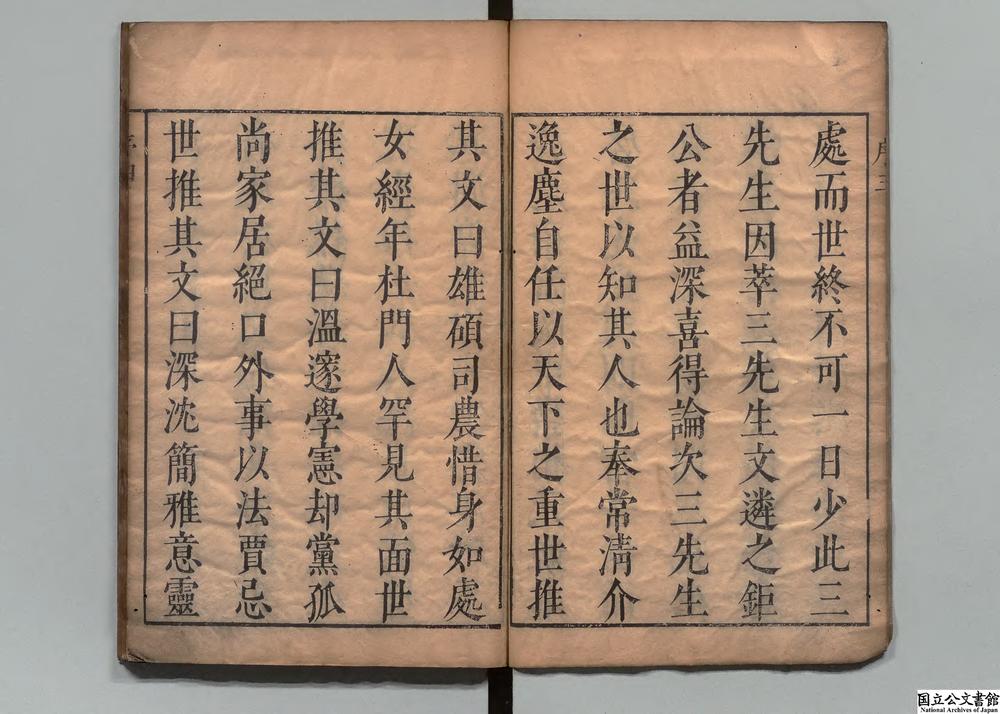 處而世終不可一日少此三
先生因萃三先生文遴之鉅
公者益深喜得論次三先生
之世以知其人也奉常淸介
逸塵自任以天下之重世推
其文曰雄碩司農惜身如處
女經年杜門人罕見其面世
推其文曰溫邃學憲却黨孤
尚家居絕口外事以法賈忌
世推其文曰深沈簡雅意靈
国立公文書館
National Archives of Japan